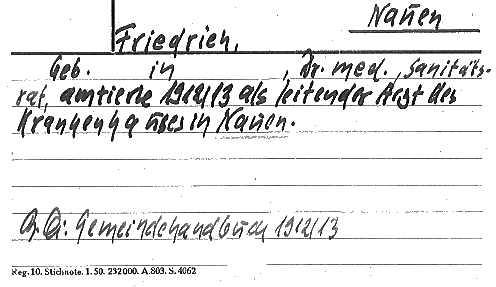 Nauen
Friedrich,
Geb. in , Dr. med., Sanitäts-
rat, amtierte 1912/13 als leitender Arzt des
Krankenhauses in Nauen.
Gemeindehandbuch 1912/13
Reg. 10. Stichnote. 1. 50. 232000. A. 803. S. 4062